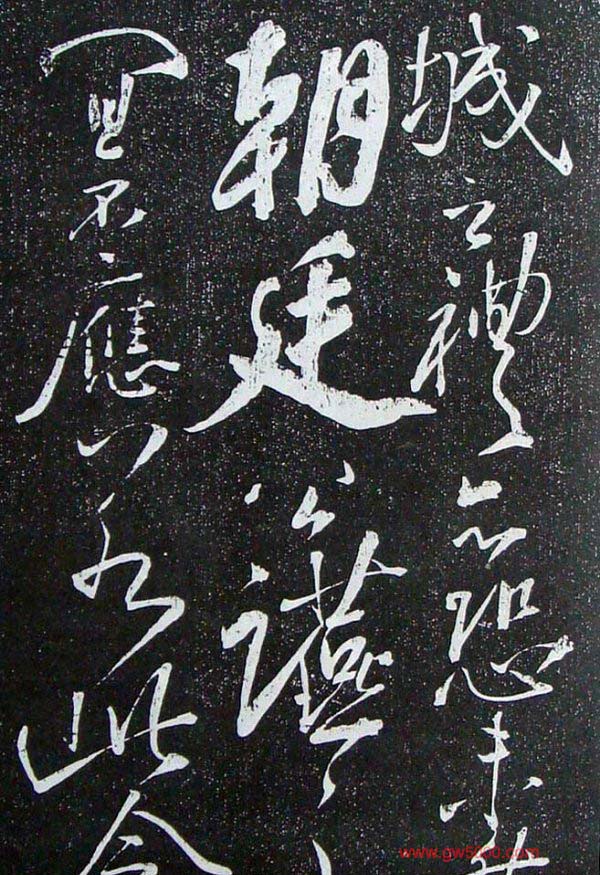 城之禮亦恐未
朝廷公讌
冝不應若此今
www.gw5000.com